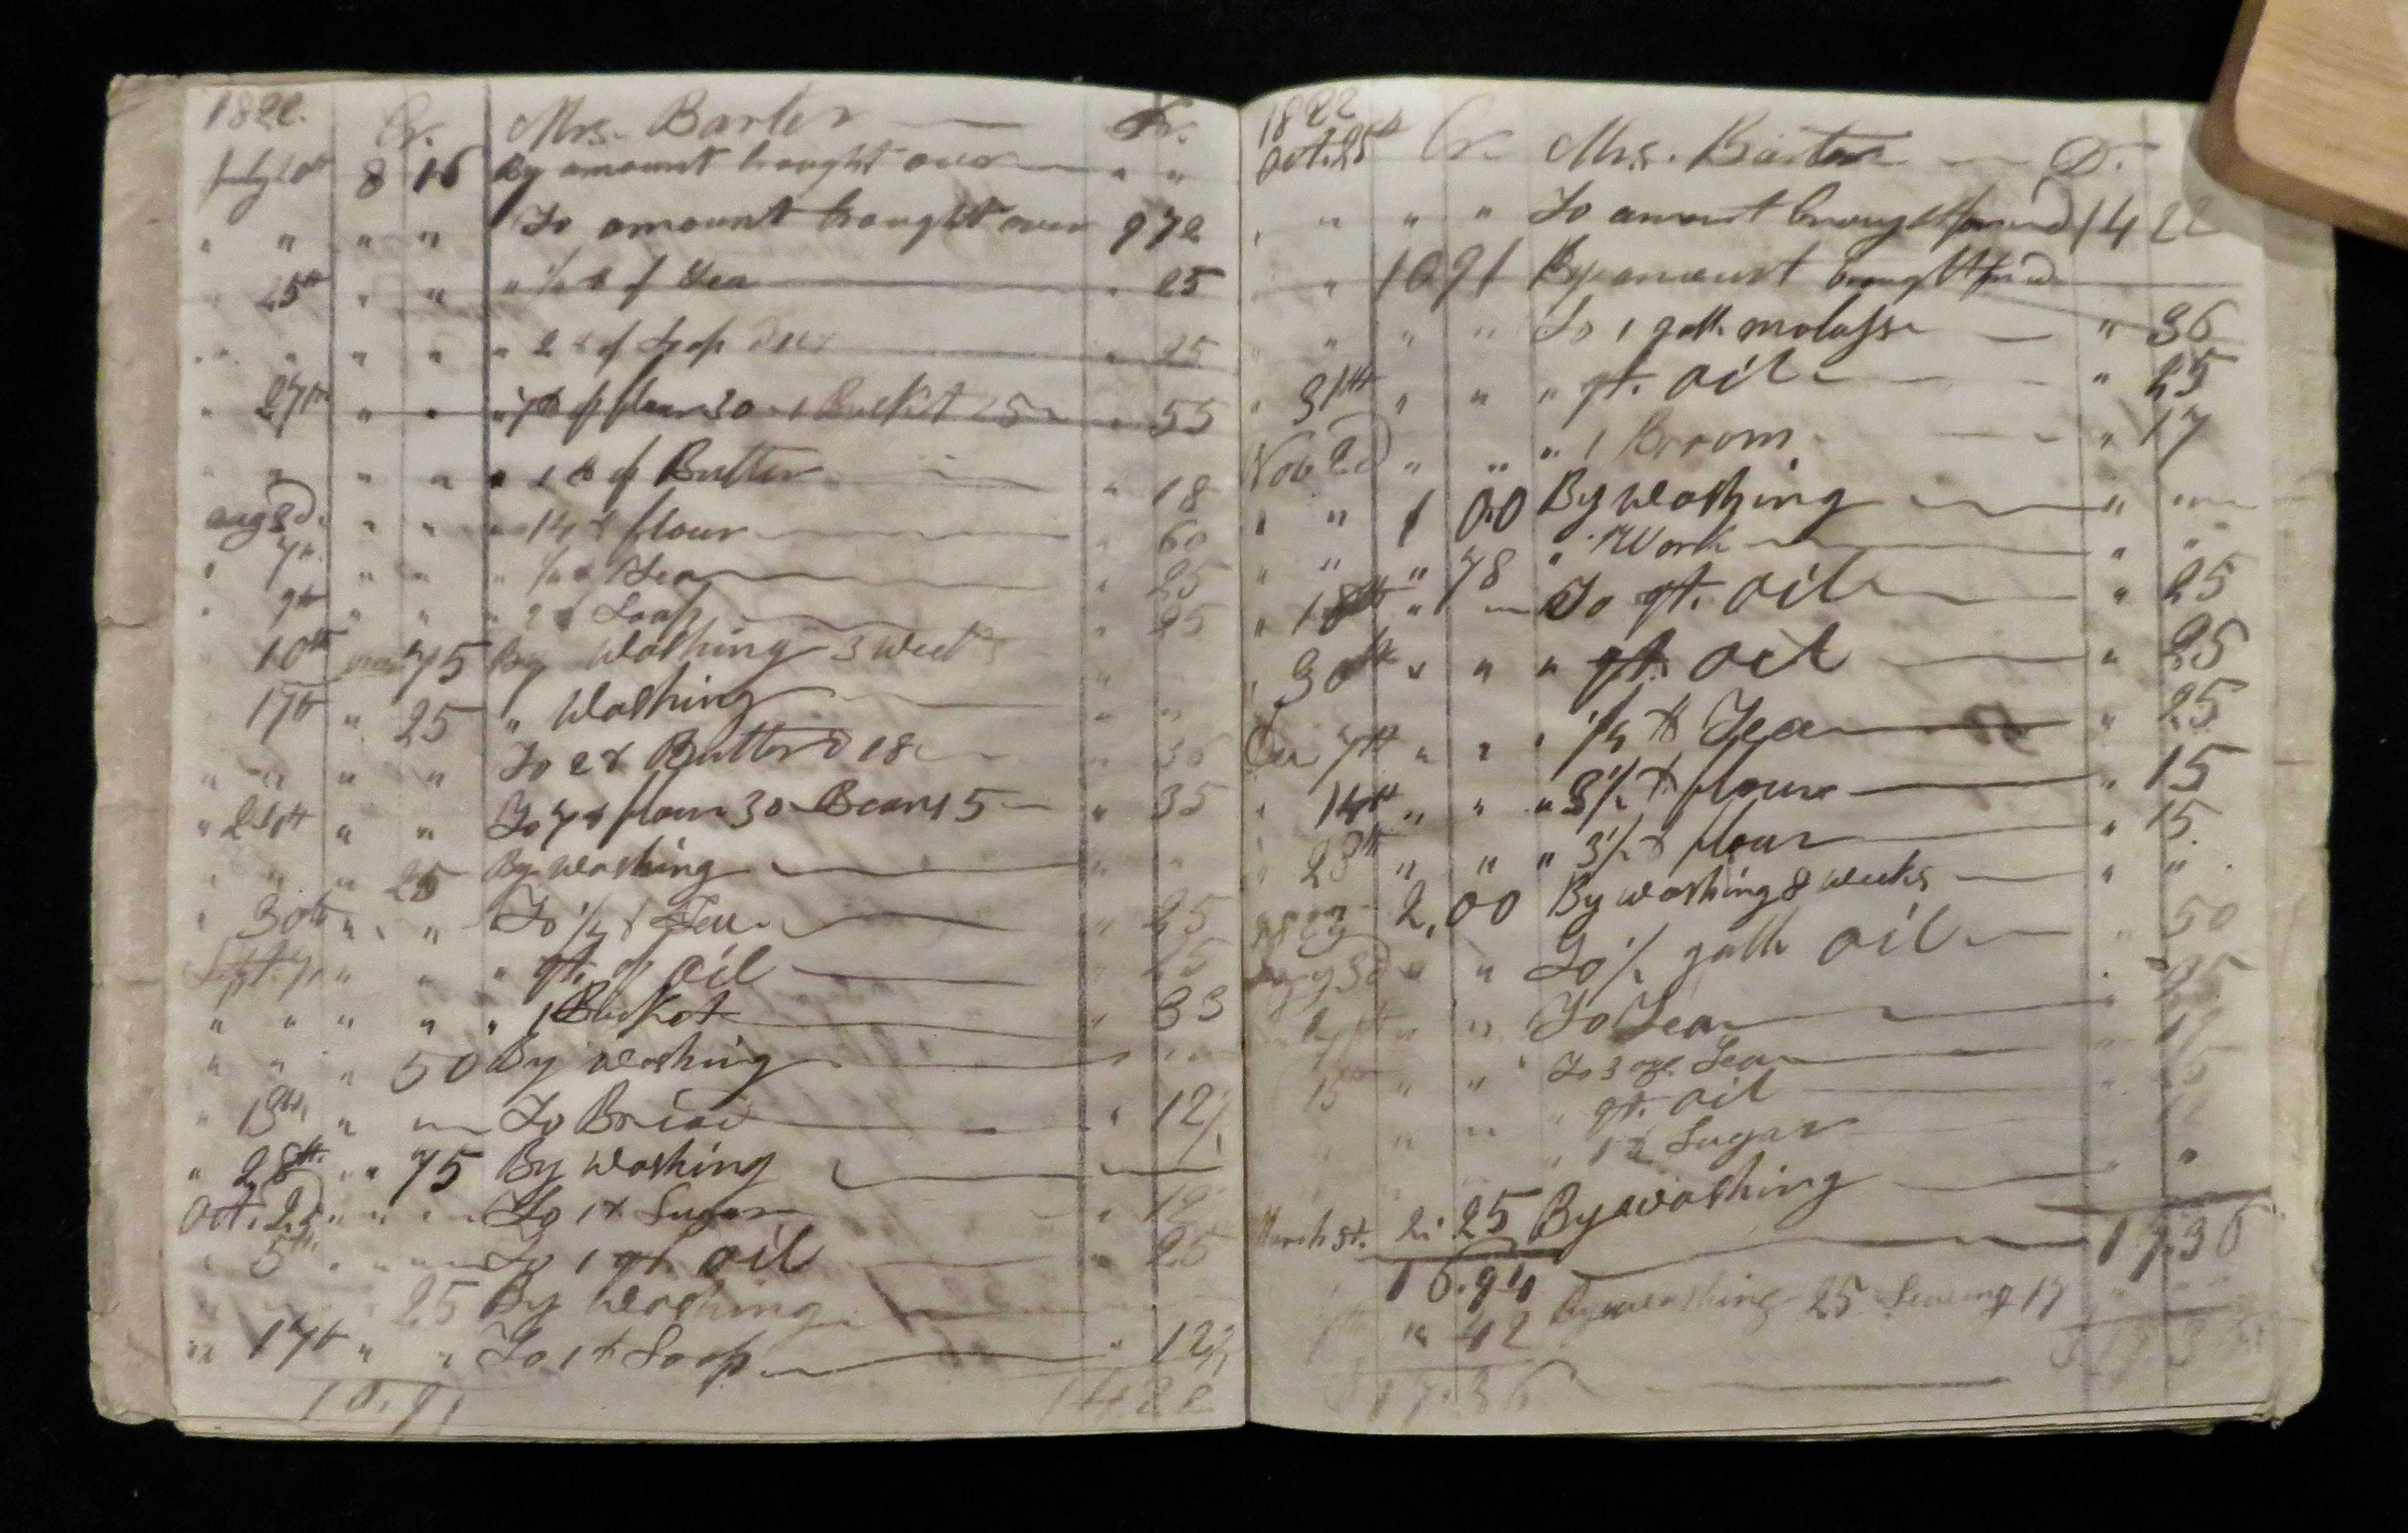 1822.
Cr. Mrs. Barter Dr.
July 20th 8 16 By amount brought over " "
" " " " To amount brought over 9 72
" 25th " " " 1/4 lb of Tea " 25
" " " " " 2 lb of Soap " 25
" 27th " " " 7 lb of flour 30 - 1 Bucket 25 " 55
" " " " " 1 lb of Butter " 18
Aug 3d " " " 14 lb flour " 60
" 7th " " " 1/4 lb Tea " 25
" 9th " " " 2 lb Soap " 25
" 10th 75 By Washing 3 weeks " "
" 17th " 25 " Washing " "
" " " " To 2 lb Butter 18 " 36
" 24th " " To 7 lb flour 30 Beans 5 " 35
" " " 25 By Washing " "
" 30th " " To 1/4 lb Tea " 25
Sept. 7th " " " qt. of oil " 25
" " " " " 1 Bucket " 33
" " " 50 By Washing " "
" 13th " " To Bread " 12 1/2
" 28th " 75 By Washing
Oct. 2d " " To 1 lb Sugar " 12
" 5th " " To 1 qt oil " 25
" " 25 By Washing
" 17th " " To 1 lb Soap " 12 1/2
10.91 14.22
1822
Oct. 25th Cr. Mrs. Barter D.
" " " " To amount brought forward 14 22
" " 10 91 By amount brought forwd
" " " " To 1 gall. molasse " 36
" 31th " " " qt. oil " 25
Nov 2d " " " 1 Broom " 17
" " 1 00 By Washing " "
" " " 78 " Work " "
" 18th " " To qt. oil " 25
" 30th " " " qt. oil " 25
Dec 7th " " " 1/4 lb Tea " 25
" 14th " " " 3 1/2 lb flour " 15
" 28th " " " 3 1/2 lb flour " 15
1823 2,00 By washing 8 weeks " "
3d " " To 1/2 gall. oil " 50
" " To Tea " 25
15th " " To 3 oz. Tea
" " " qt. oil
" 1 lb Sugar
March st. 2. 25 By washing "
16.94 17.36
" 42 By washing 25 Sewing 17
$17.36